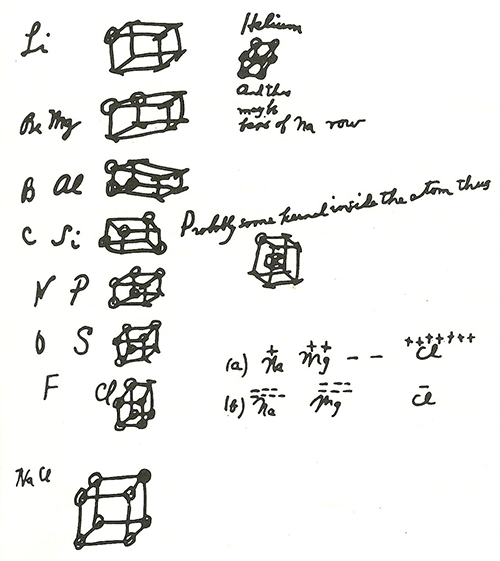 Li
Helium
And this
may be
base of Na row
Be Mg
B Al
C Si
Probably some kernel inside the atom thus
N P
O S
F Cl
+ ++ +++++++
(a) Na Mg - - Cl
(b) Na Mg Cl
Na Cl